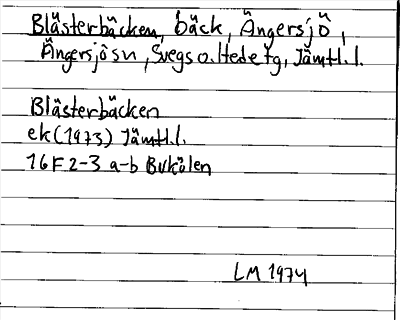 Blästerbäcken, bäck, Ängersjö,
Ängersjö sn, Svegs o. Hede tg, Jämtl. l.
Blästerbäcken
ek (1973) Jämtl. l.
16F 2-3 a-b Bukölen
LM 1974